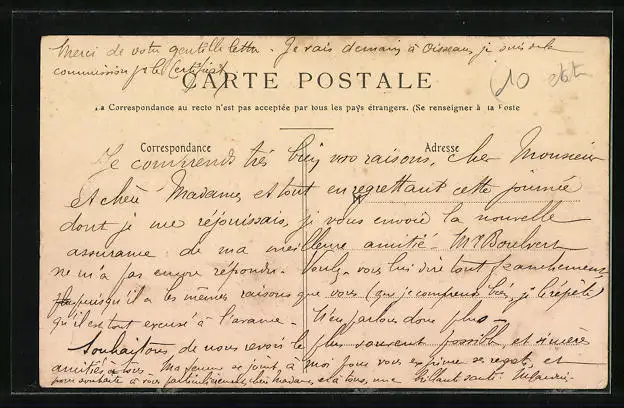 Merci de votre gentille lettre. Je vais demain à Oisseau, je suis de la
commission pr le Certificat
CARTE POSTALE
La Correspondance au recto n'est pas acceptée par tous les pays étrangers. (Se renseigner à la Poste
Correspondance
Adresse
Je comprends très bien vos raisons, cher Monsieur
et chère Madame, et tout en regrettant cette journée
dont je me réjouissais, je vous envoie la nouvelle
assurance de ma meilleure amitié. Mr
ne m'a pas encore répondu. Voulez-vous lui dire tout franchement
puisqu'il a les mêmes raisons que vous (que je comprends bien, je le répète)
qu'il est tout excusé à l'avance. N'en parlons donc plus.
Souhaitons de nous revoir le plus souvent possible, et sincères
amitiés à tous. Ma femme se joint à moi pour vous exprimer ses regrets, et
pour souhaiter à vous particulièrement, chère Madame, et à tous, une brillante santé.